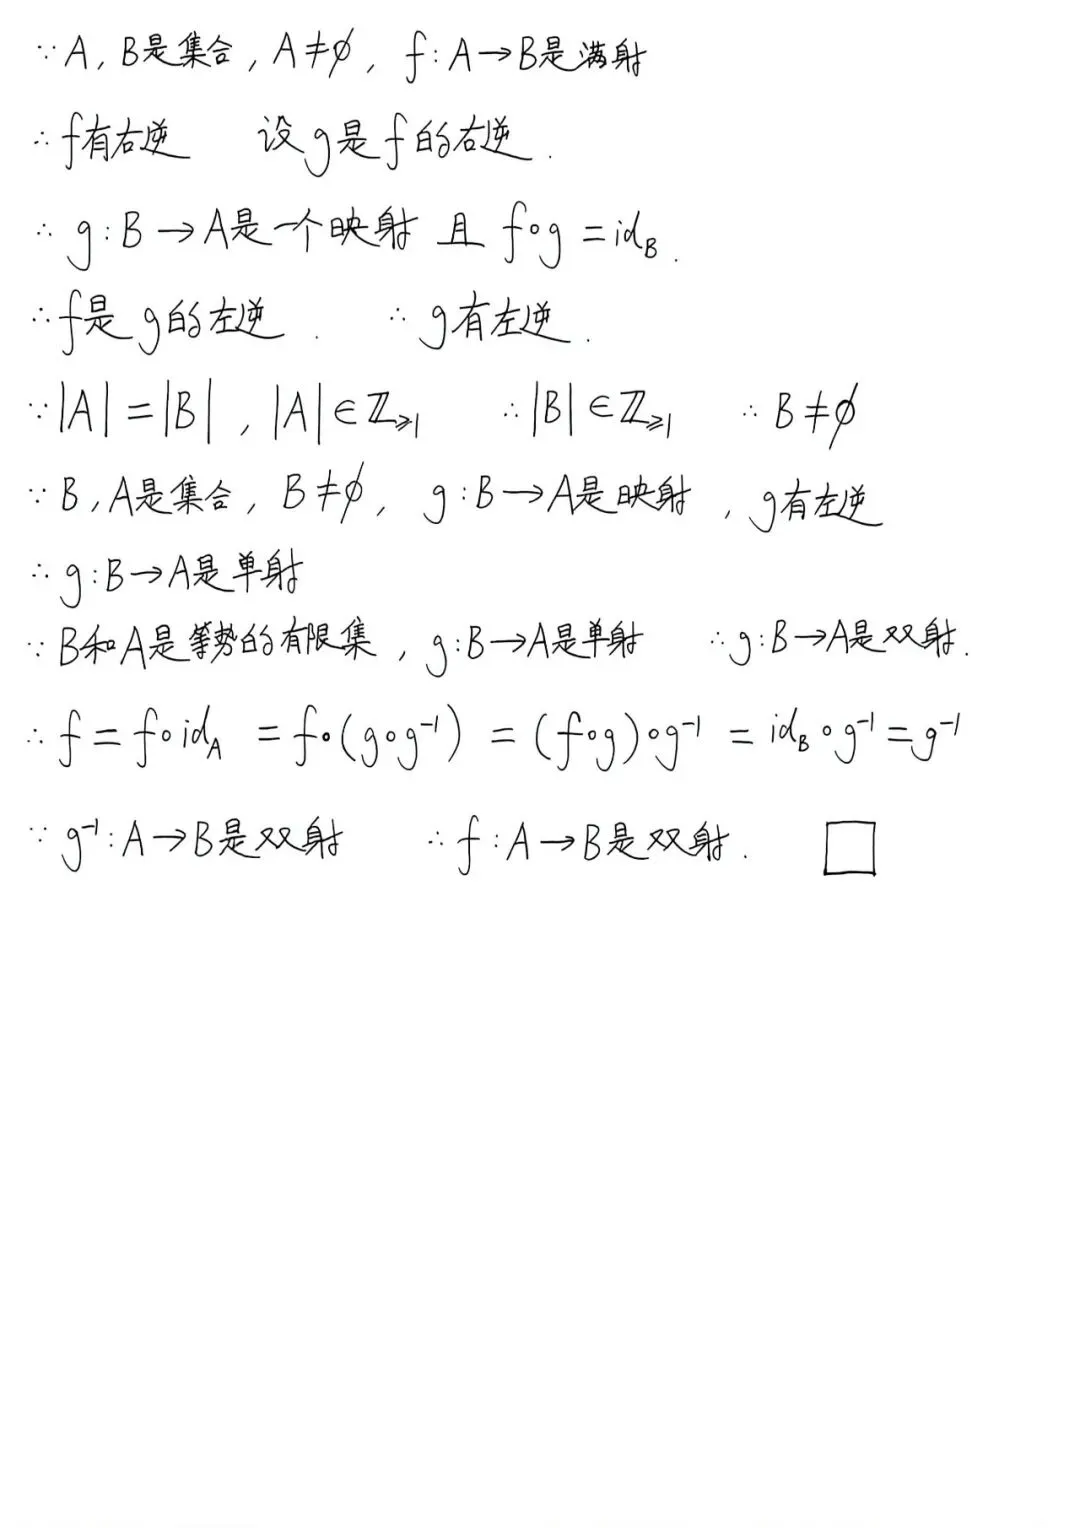 ∵ A, B是集合, A≠∅, f:A→B是满射
∴ f有右逆 设g是f的右逆.
∴ g:B→A是一个映射 且 f∘g=id_B.
∴ f是g的左逆. ∴ g有左逆.
∵ |A|=|B|, |A|∈ℤ_≥1 ∴ |B|∈ℤ_≥1 ∴ B≠∅
∵ B, A是集合, B≠∅, g:B→A是映射, g有左逆
∴ g:B→A是单射
∵ B和A是等势的有限集, g:B→A是单射 ∴ g:B→A是双射.
∴ f=f∘id_A=f∘(g∘g⁻¹)=(f∘g)∘g⁻¹=id_B∘g⁻¹=g⁻¹
∵ g⁻¹:A→B是双射 ∴ f:A→B是双射. □